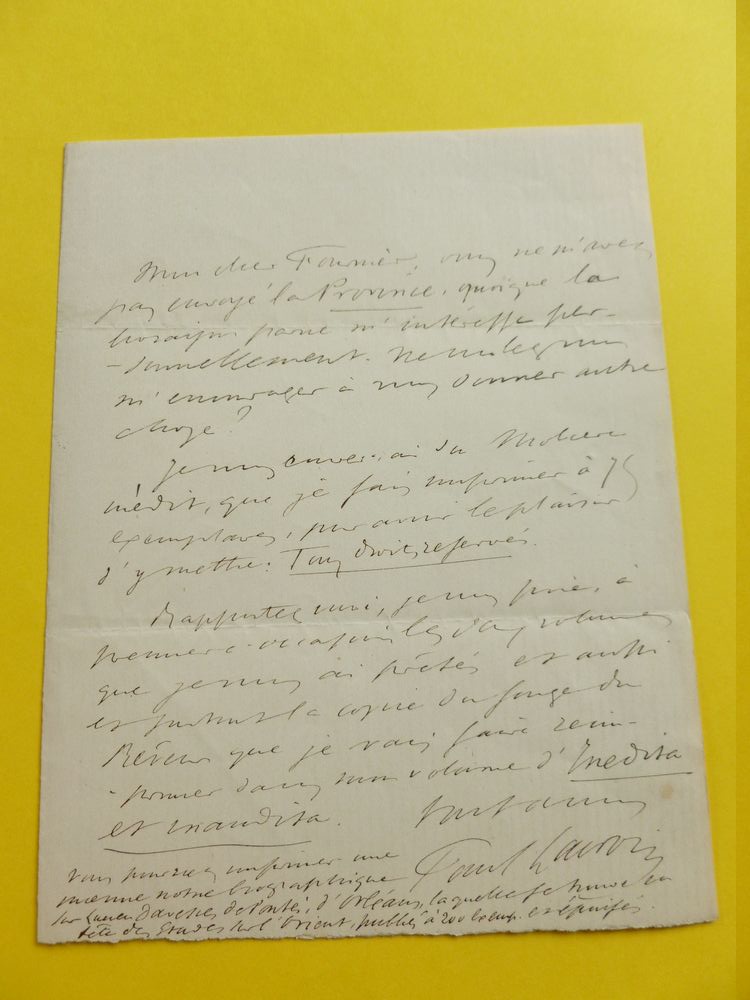 Mon cher Fournier, vous ne m'avez
pas envoyé la Province, quoique la
livraison parue m'intéresse per-
-sonnellement. Ne voulez-vous
m'encourager à vous donner autre
chose?
Je vous enverrai du Moliere
inédit, que je fais imprimer à 75
exemplaires, pour avoir le plaisir
d'y mettre: Tous droits réservés.
Rapportez moi, je vous prie, à
premiere occasion les deux volumes
que je vous ai prêtés et aussi
et surtout la copie du Songe du
Rêveur que je vais faire réim-
-primer dans mon volume d'Inedita
et inaudita.
Tout à vous
Paul Lacroix
Vous pourriez imprimer une
notre biographique
sur Davesies de Pontès, d'Orléans, laquelle se trouve en
tête des Etudes sur l'Orient, publiés à 200 exemp. et épuisés.